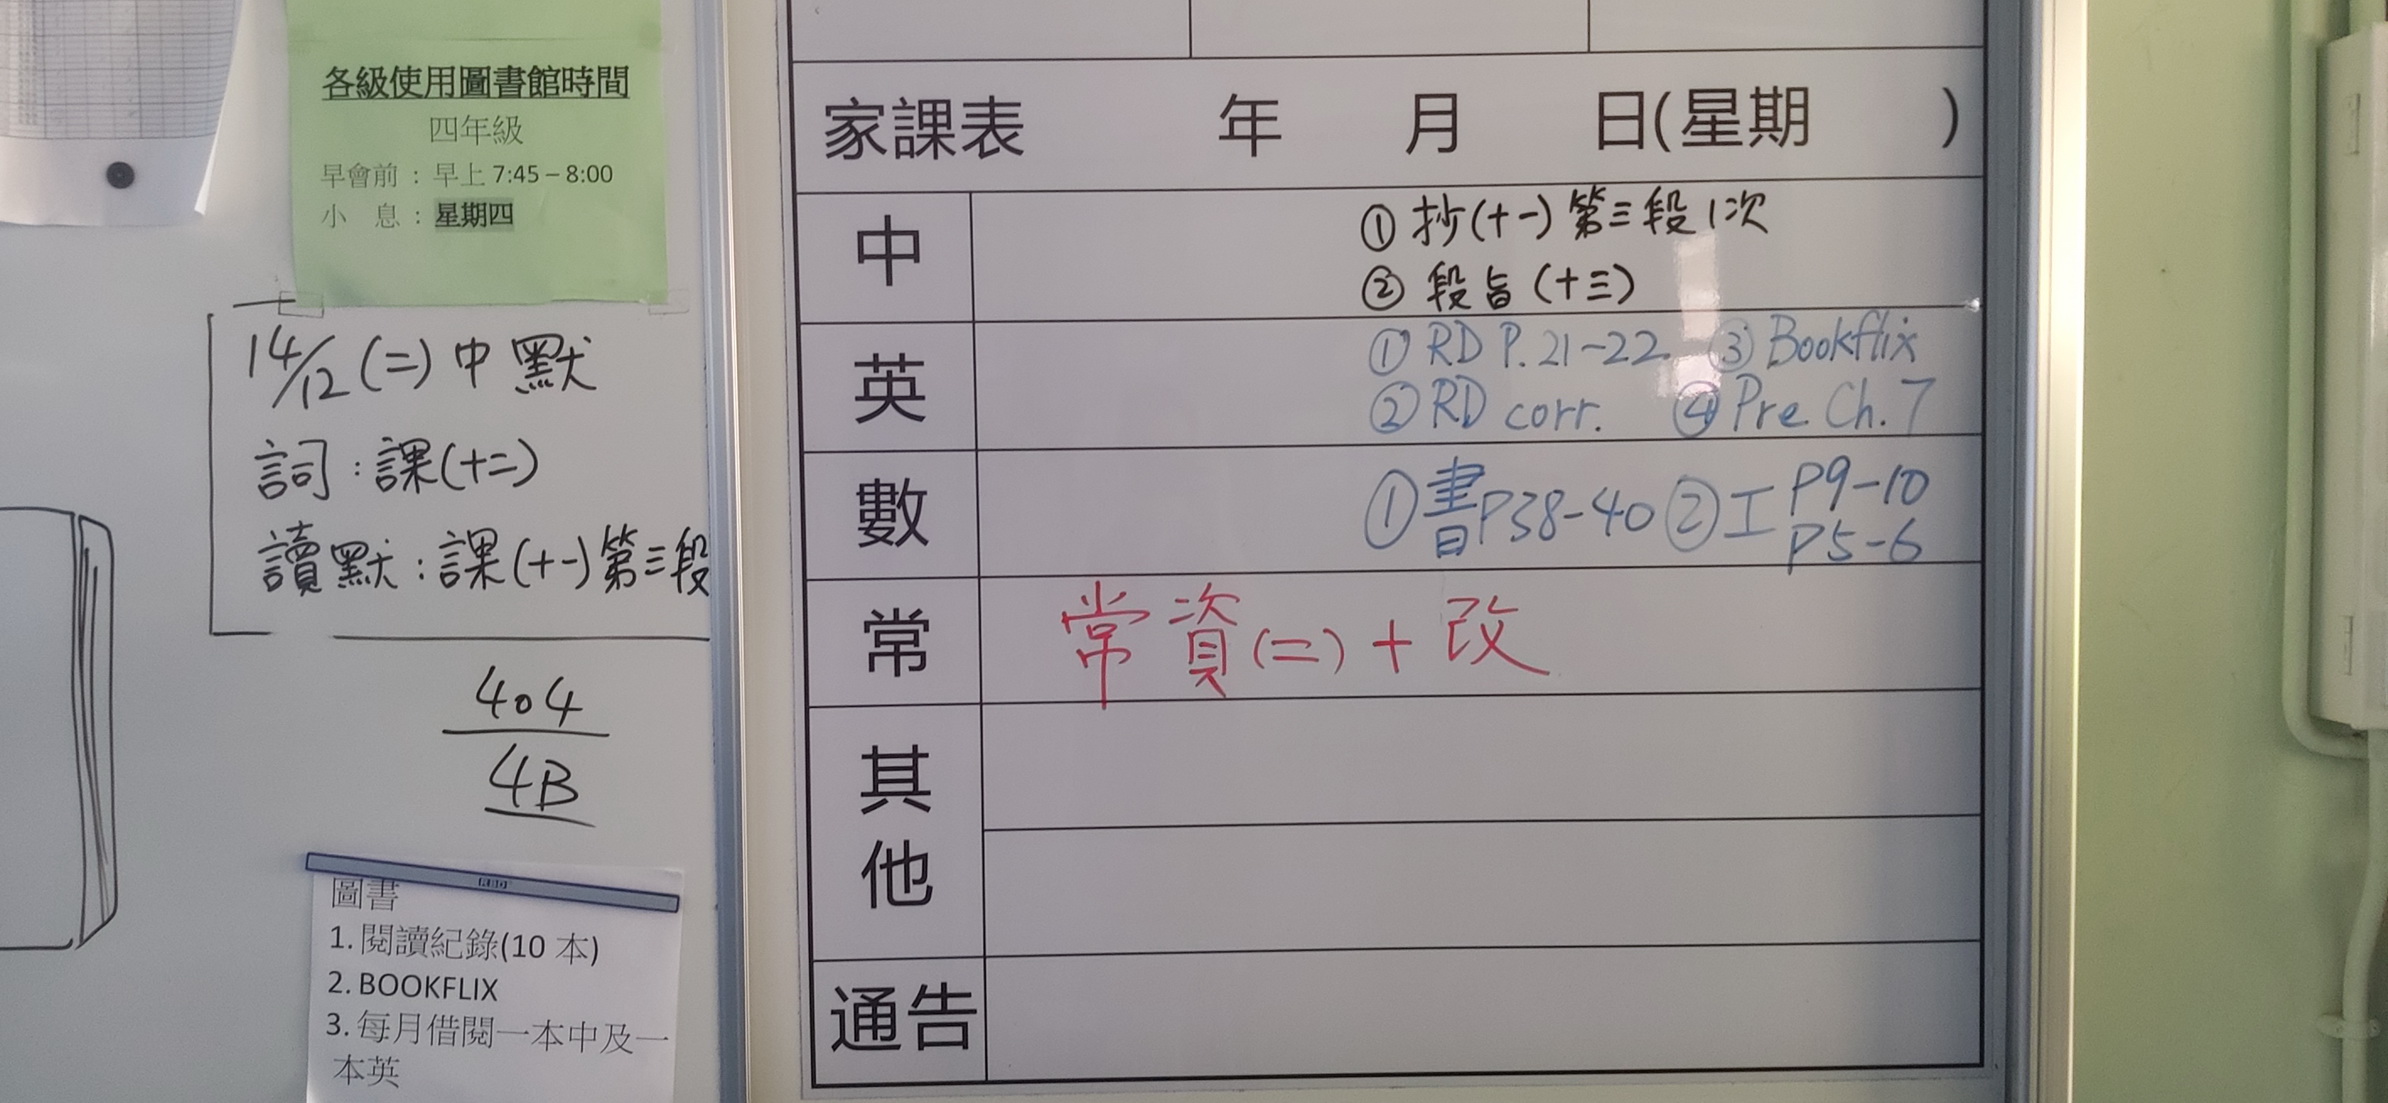 各級使用圖書館時間
四年級
早會前：早上 7:45 – 8:00
小 息：星期四
14/12 (二) 中默
詞：課(十二)
讀默：課(十一)第三段
404
4B
圖書
1. 閱讀紀錄(10 本)
2. BOOKFLIX
3. 每月借閱一本中及一
本英
家課表 年 月 日(星期 )
中
① 抄(十一)第三段1次
② 段旨(十三)
英
① RD P.21-22 ③ Bookflix
② RD corr. ④ Pre. Ch.7
數
① 書P38-40 ② 工 P9-10
P5-6
常
常資(二) + 改
其他
通告